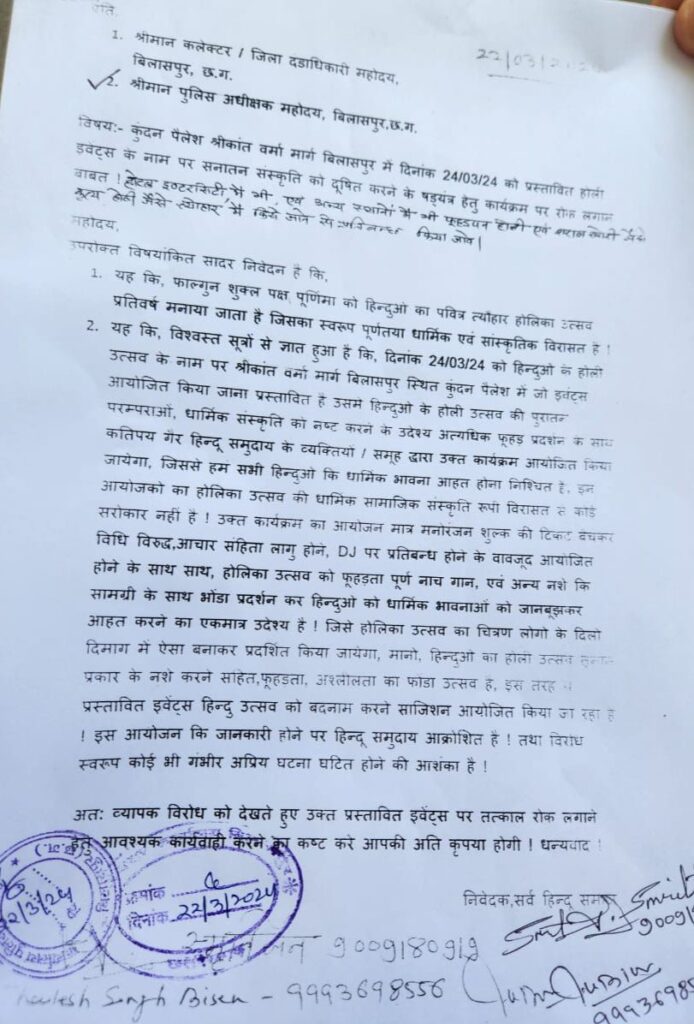 प्रति,
22/03/2024
1. श्रीमान कलेक्टर / जिला दंडाधिकारी महोदय,
बिलासपुर, छ.ग.
2. श्रीमान पुलिस अधीक्षक महोदय, बिलासपुर,छ.ग.
विषय:- कुंदन पैलेश श्रीकांत वर्मा मार्ग बिलासपुर में दिनांक 24/03/24 को प्रस्तावित होली
इवेंट्स के नाम पर सनातन संस्कृति को दूषित करने के षड़यंत्र हेतु कार्यक्रम पर रोक लगाने
बाबत ! होटल इन्टरसिटी में भी एवं अन्य स्थानों में भी फूहड़पन
होली जैसे त्योहार में किये जाने से प्रतिबन्ध किया जावे।
महोदय,
उपरोक्त विषयांकित सादर निवेदन है कि,
1. यह कि, फाल्गुन शुक्ल पक्ष पूर्णिमा को हिन्दुओ का पवित्र त्यौहार होलिका उत्सव
प्रतिवर्ष मनाया जाता है जिसका स्वरूप पूर्णतया धार्मिक एवं सांस्कृतिक विरासत है !
2. यह कि, विश्वस्त सूत्रों से ज्ञात हुआ है कि, दिनांक 24/03/24 को हिन्दुओ के होली
उत्सव के नाम पर श्रीकांत वर्मा मार्ग बिलासपुर स्थित कुंदन पैलेश में जो इवेंट्स
आयोजित किया जाना प्रस्तावित है उसमे हिन्दुओ के होली उत्सव की पुरातन
परम्पराओं, धार्मिक संस्कृति को नष्ट करने के उदेश्य अत्यधिक फूहड़ प्रदर्शन के साथ
कतिपय गैर हिन्दू समुदाय के व्यक्तियों / समूह द्वारा उक्त कार्यक्रम आयोजित किया
जायेगा, जिससे हम सभी हिन्दुओ कि धार्मिक भावना आहत होना निश्चित है, इन
आयोजको का होलिका उत्सव की धार्मिक सामाजिक संस्कृति रूपी विरासत से कोई
सरोकार नहीं है ! उक्त कार्यक्रम का आयोजन मात्र मनोरंजन शुल्क की टिकट बेचकर
विधि विरुद्ध,आचार संहिता लागु होने, DJ पर प्रतिबन्ध होने के वावजूद आयोजित
होने के साथ साथ, होलिका उत्सव को फूहड़ता पूर्ण नाच गान, एवं अन्य नशे कि
सामग्री के साथ भोंडा प्रदर्शन कर हिन्दुओ को धार्मिक भावनाओं को जानबूझकर
आहत करने का एकमात्र उदेश्य है ! जिसे होलिका उत्सव का चित्रण लोगो के दिलो
दिमाग में ऐसा बनाकर प्रदर्शित किया जायेगा, मानो, हिन्दुओ का होली उत्सव
प्रकार के नशे करने सहित,फूहड़ता, अश्लीलता का फोंडा उत्सव है, इस तरह
प्रस्तावित इवेंट्स हिन्दु उत्सव को बदनाम करने साजिशन आयोजित किया जा रहा है
! इस आयोजन कि जानकारी होने पर हिन्दू समुदाय आक्रोशित है ! तथा विरोध
स्वरूप कोई भी गंभीर अप्रिय घटना घटित होने की आशंका है !
अत: व्यापक विरोध को देखते हुए उक्त प्रस्तावित इवेंट्स पर तत्काल रोक लगाने
हेतु आवश्यक कार्यवाही करने का कष्ट करे आपकी अति कृपया होगी ! धन्यवाद !
क्रमांक
दिनांक 22/3/2024
22/3/24
निवेदक,सर्व हिन्दू समाज
9009180919
Singh Bisen - 9993698556